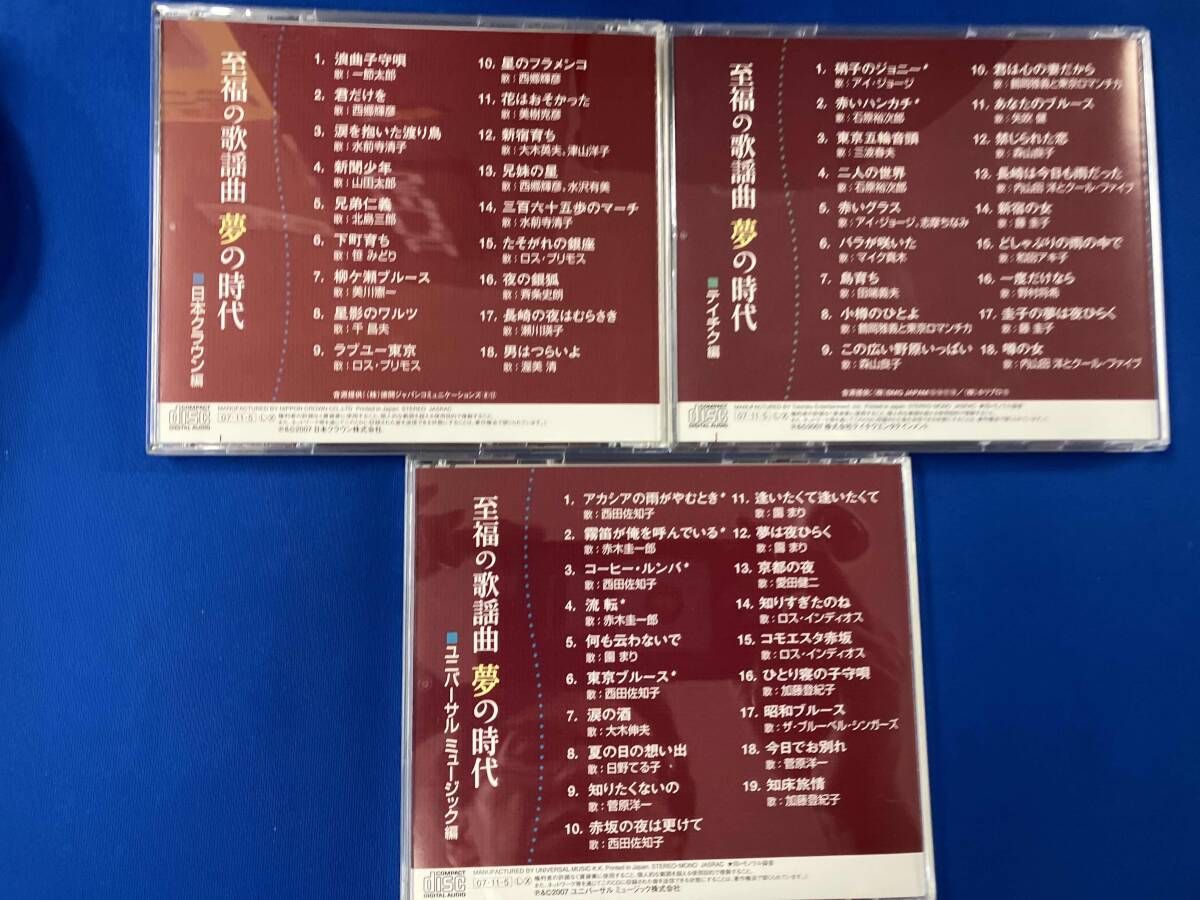 至福の歌謡曲 夢の時代
■日本クラウン編
1. 浪曲子守唄
歌:一節太郎
2. 君だけを
歌:西郷輝彦
3. 涙を抱いた渡り鳥
歌:水前寺清子
4. 新聞少年
歌:山田太郎
5. 兄弟仁義
歌:北島三郎
6. 下町育ち
歌:笹 みどり
7. 柳ケ瀬ブルース
歌:美川憲一
8. 星影のワルツ
歌:千 昌夫
9. ラブユー東京
歌:ロス・プリモス
10. 星のフラメンコ
歌:西郷輝彦
11. 花はおそかった
歌:美樹克彦
12. 新宿育ち
歌:大木英夫,津山洋子
13. 兄妹の星
歌:西郷輝彦,水沢有美
14. 三百六十五歩のマーチ
歌:水前寺清子
15. たそがれの銀座
歌:ロス・プリモス
16. 夜の銀狐
歌:斉条史朗
17. 長崎の夜はむらさき
歌:瀬川瑛子
18. 男はつらいよ
歌:渥美 清
音源提供:(株)徳間ジャパンコミュニケーションズ
COMPACT disc DIGITAL AUDIO
MANUFACTURED BY NIPPON CROWN CO.,LTD. Printed in Japan. STEREO JASRAC
07・11・5
℗&©2007 日本クラウン株式会社
至福の歌謡曲 夢の時代
■テイチク編
1. 硝子のジョニー*
歌:アイ・ジョージ
2. 赤いハンカチ*
歌:石原裕次郎
3. 東京五輪音頭
歌:三波春夫
4. 二人の世界
歌:石原裕次郎
5. 赤いグラス
歌:アイ・ジョージ、志摩ちなみ
6. バラが咲いた
歌:マイク真木
7. 島育ち
歌:田端義夫
8. 小樽のひとよ
歌:鶴岡雅義と東京ロマンチカ
9. この広い野原いっぱい
歌:森山良子
10. 君は心の妻だから
歌:鶴岡雅義と東京ロマンチカ
11. あなたのブルース
歌:矢吹 健
12. 禁じられた恋
歌:森山良子
13. 長崎は今日も雨だった
歌:内山田 洋とクール・ファイブ
14. 新宿の女
歌:藤 圭子
15. どしゃぶりの雨の中で
歌:和田アキ子
16. 一度だけなら
歌:野村将希
17. 圭子の夢は夜ひらく
歌:藤 圭子
18. 噂の女
歌:内山田 洋とクール・ファイブ
COMPACT disc DIGITAL AUDIO
07・11・5
℗&©2007 株式会社テイチクエンタテインメント
至福の歌謡曲 夢の時代
■ユニバーサル ミュージック編
1. アカシアの雨がやむとき*
歌:西田佐知子
2. 霧笛が俺を呼んでいる*
歌:赤木圭一郎
3. コーヒー・ルンバ*
歌:西田佐知子
4. 流転*
歌:赤木圭一郎
5. 何も云わないで
歌:園 まり
6. 東京ブルース*
歌:西田佐知子
7. 涙の酒
歌:大木伸夫
8. 夏の日の想い出
歌:日野てる子
9. 知りたくないの
歌:菅原洋一
10. 赤坂の夜は更けて
歌:西田佐知子
11. 逢いたくて逢いたくて
歌:園 まり
12. 夢は夜ひらく
歌:園 まり
13. 京都の夜
歌:愛田健二
14. 知りすぎたのね
歌:ロス・インディオス
15. コモエスタ赤坂
歌:ロス・インディオス
16. ひとり寝の子守唄
歌:加藤登紀子
17. 昭和ブルース
歌:ザ・ブルーベル・シンガーズ
18. 今日でお別れ
歌:菅原洋一
19. 知床旅情
歌:加藤登紀子
COMPACT disc DIGITAL AUDIO
MANUFACTURED BY UNIVERSAL MUSIC K.K. Printed in Japan. STEREO-MONO JASRAC ★印・モノラル録音
07・11・5
℗&©2007 ユニバーサル ミュージック株式会社